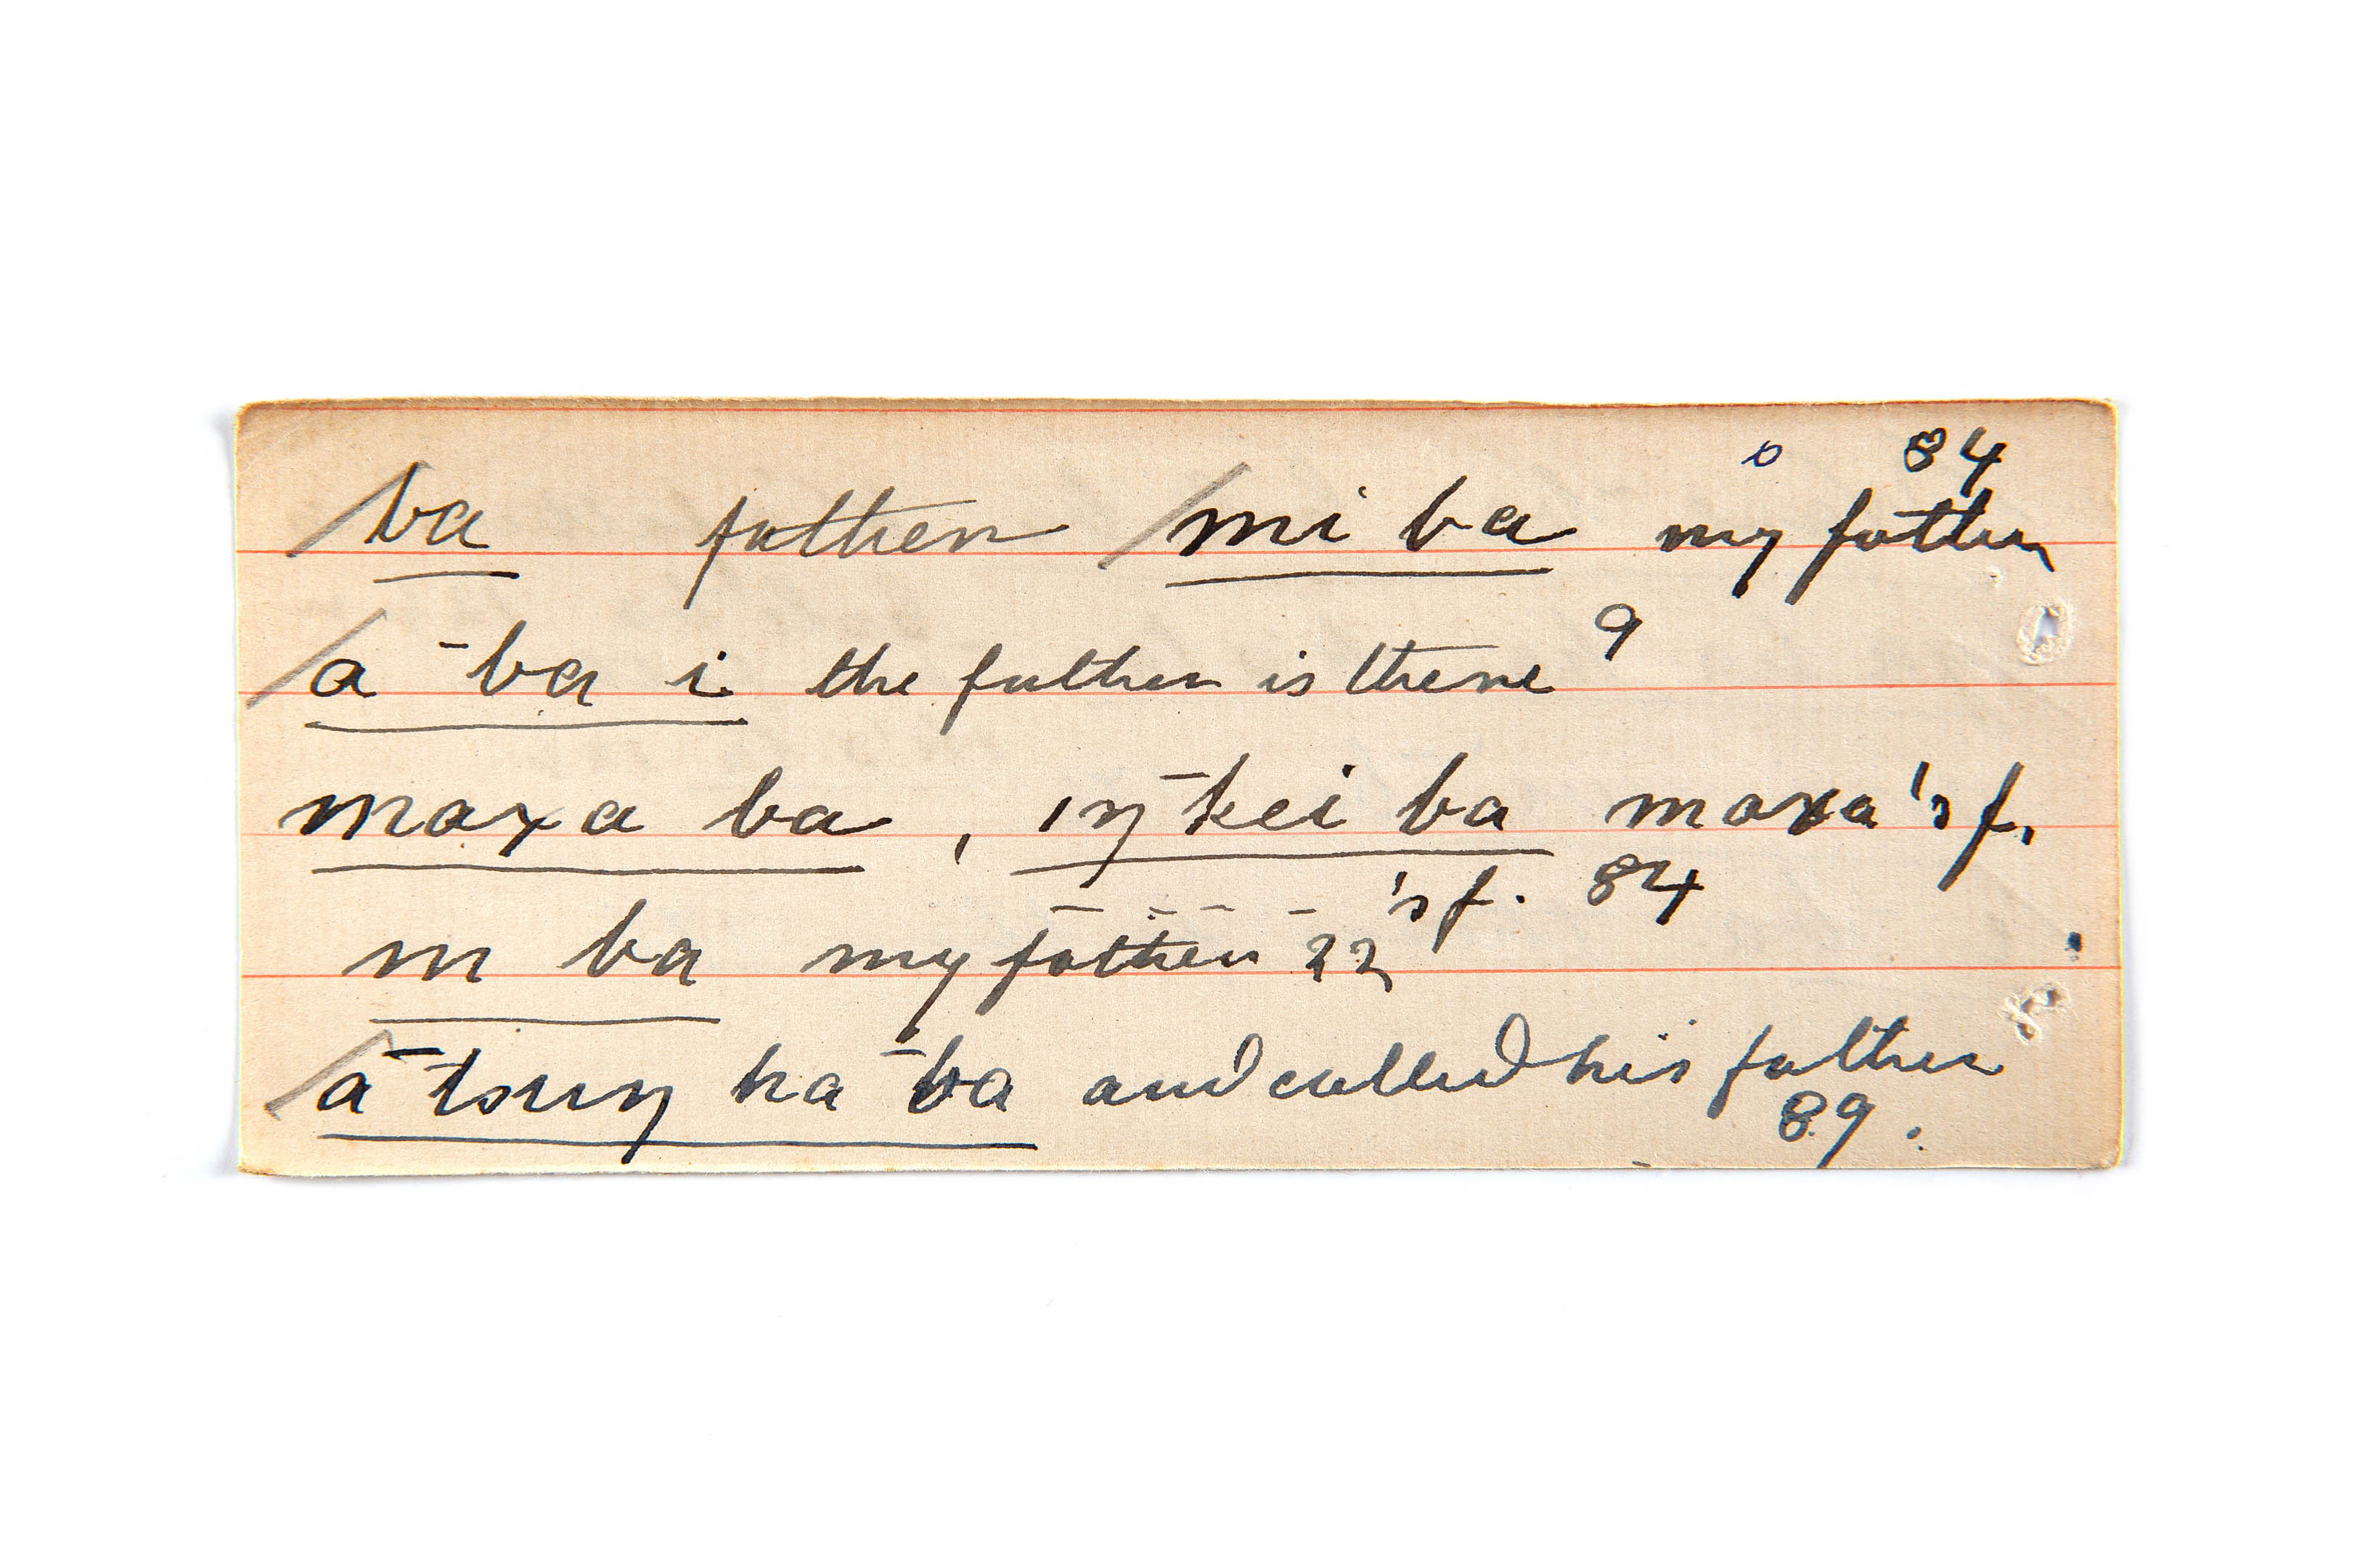 ba father mi ba my father 84
a ¯ba i the father is there 9
maxa ba, ıŋ¯kei ba maxa's f.
's f. 84
m ba my father 22
a ¯tsuŋ ha ¯ba and called his father
89.